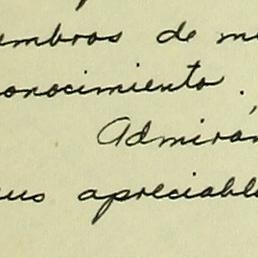 embros de m
onocimiento.
Admirán
us apreciabl